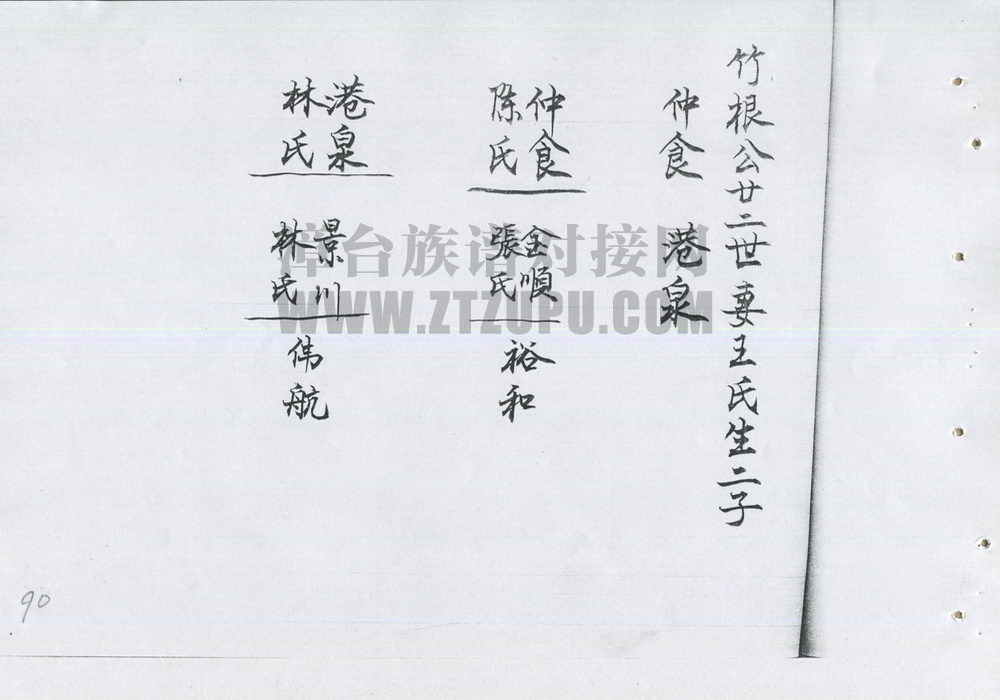 竹根公廿二世妻王氏生二子
仲食 港泉
仲食
陈氏
金順
張氏
裕和
港泉
林氏
景川
林氏
伟航
樟台族谱对接网
WWW.ZTZUPU.COM
90